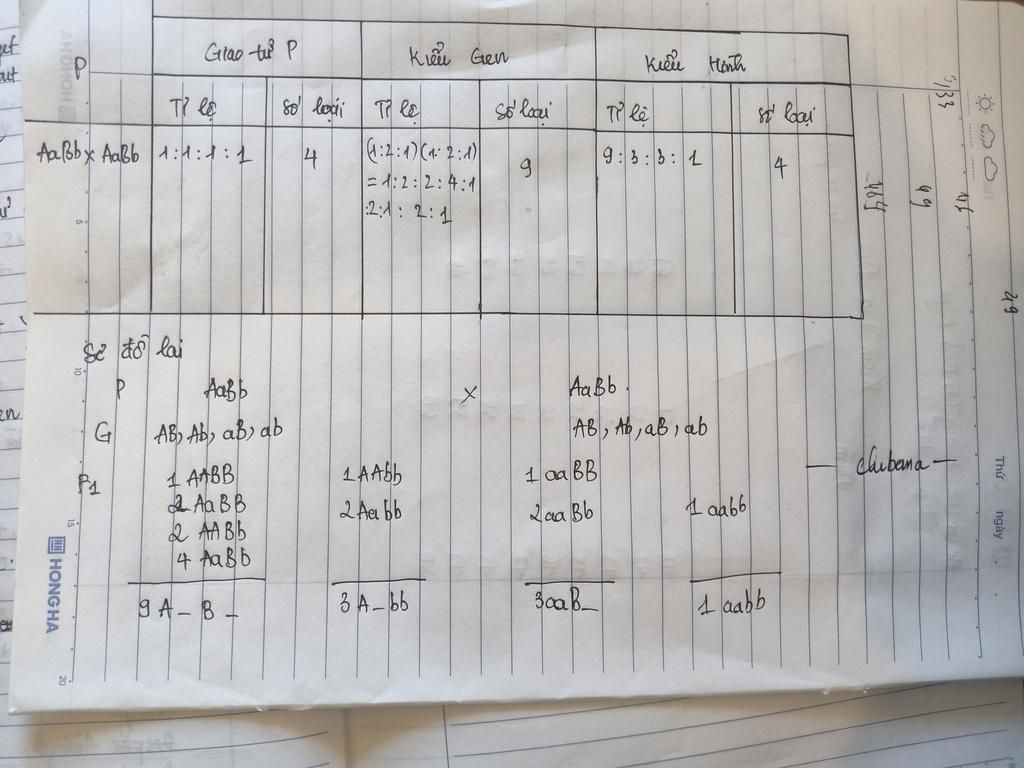 P Giao tử P Kiểu Gen Kiểu Hình
Tỉ lệ Số loại Tỉ lệ Số loại Tỉ lệ Số loại
AaBb x AaBb 1:1:1:1 4 (1:2:1)(1:2:1) 9 9:3:3:1 4
=1:2:2:4:1
:2:1:2:1
Sơ đồ lai
P AaBb x AaBb
G AB, Ab, aB, ab AB, Ab, aB, ab
F1 1 AABB 1 AAbb 1 aaBB
2 AaBB 2 Aabb 2 aaBb 1 aabb
2 AABb
4 AaBb
9 A_B_ 3 A_bb 3 aaB_ 1 aabb
— chubana —
HONG HA
Thứ ngày
5
10
15
20
49